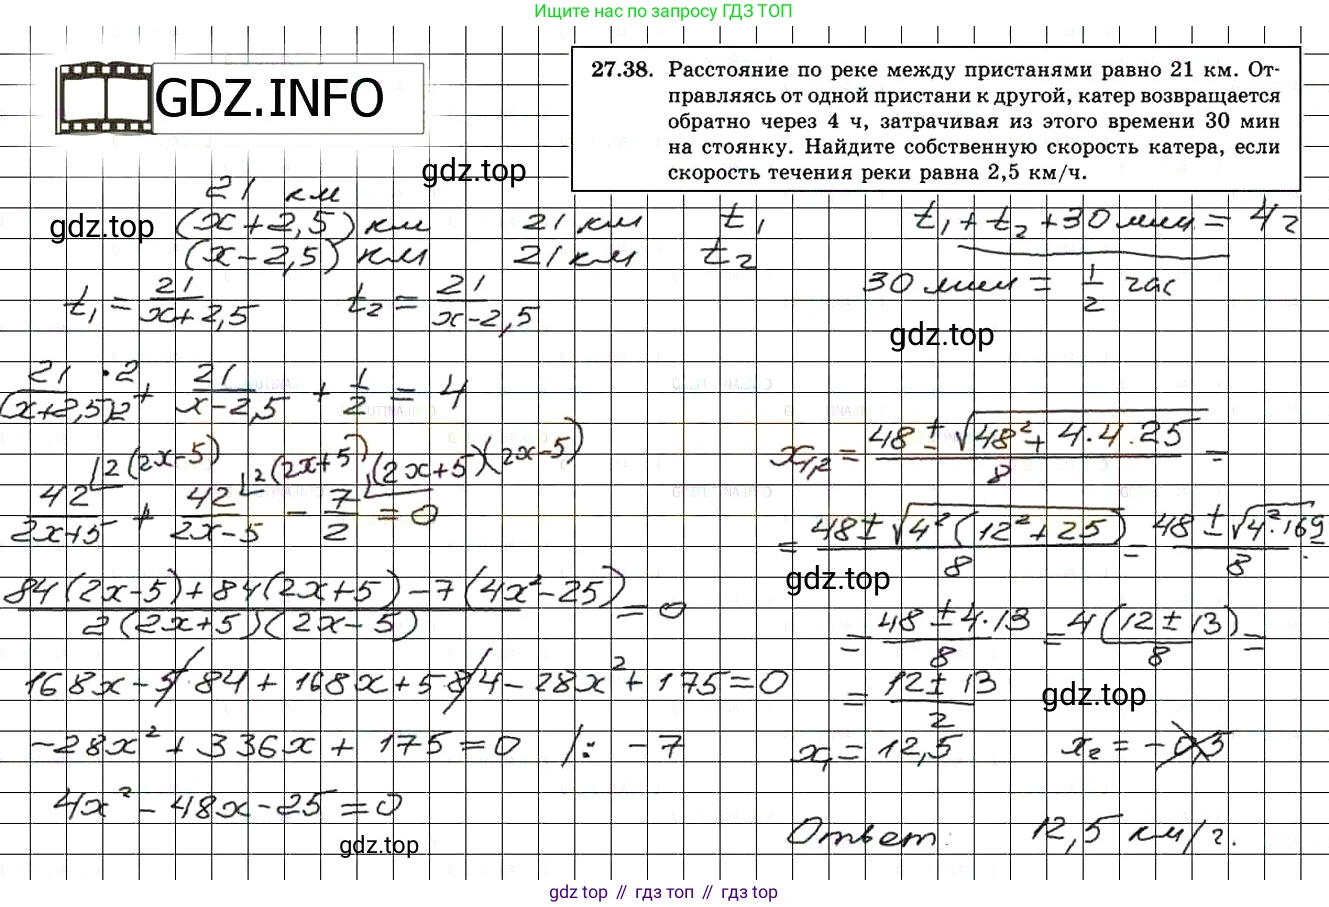 Ищите нас по запросу ГДЗ ТОП
GDZ.INFO
27.38. Расстояние по реке между пристанями равно 21 км. От-
правляясь от одной пристани к другой, катер возвращается
обратно через 4 ч, затрачивая из этого времени 30 мин
на стоянку. Найдите собственную скорость катера, если
скорость течения реки равна 2,5 км/ч.
gdz.top
21 км
gdz.top
(x+2,5) км 21 км t₁
(x-2,5) км 21 км t₂
t₁ + t₂ + 30 мин = 4 ч
t₁ = 21/(x+2,5) t₂ = 21/(x-2,5)
30 мин = 1/2 час
gdz.top
21 · 2/(x+2,5)2 + 21/(x-2,5) + 1/2 = 4
42/(2x+5) ⌊2(2x-5) + 42/(2x-5) ⌊2(2x+5) - 7/2 ⌊(2x+5)(2x-5) = 0
(84(2x-5)+84(2x+5)-7(4x²-25))/(2(2x+5)(2x-5)) = 0
168x-5·84+168x+5·84-28x²+175=0
-28x²+336x+175=0 /: -7
4x²-48x-25=0
gdz.top
x₁,₂ = (48 ± √(48²+4·4·25))/8 =
= (48 ± √(4²(12²+25)))/8 = (48 ± √(4²·169))/8 =
gdz.top
= (48 ± 4·13)/8 = 4(12 ± 13)/8 =
= (12 ± 13)/2
gdz.top
x₁ = 12,5 x₂ = -0,5
Ответ: 12,5 км/ч.
gdz top // гдз топ // gdz top